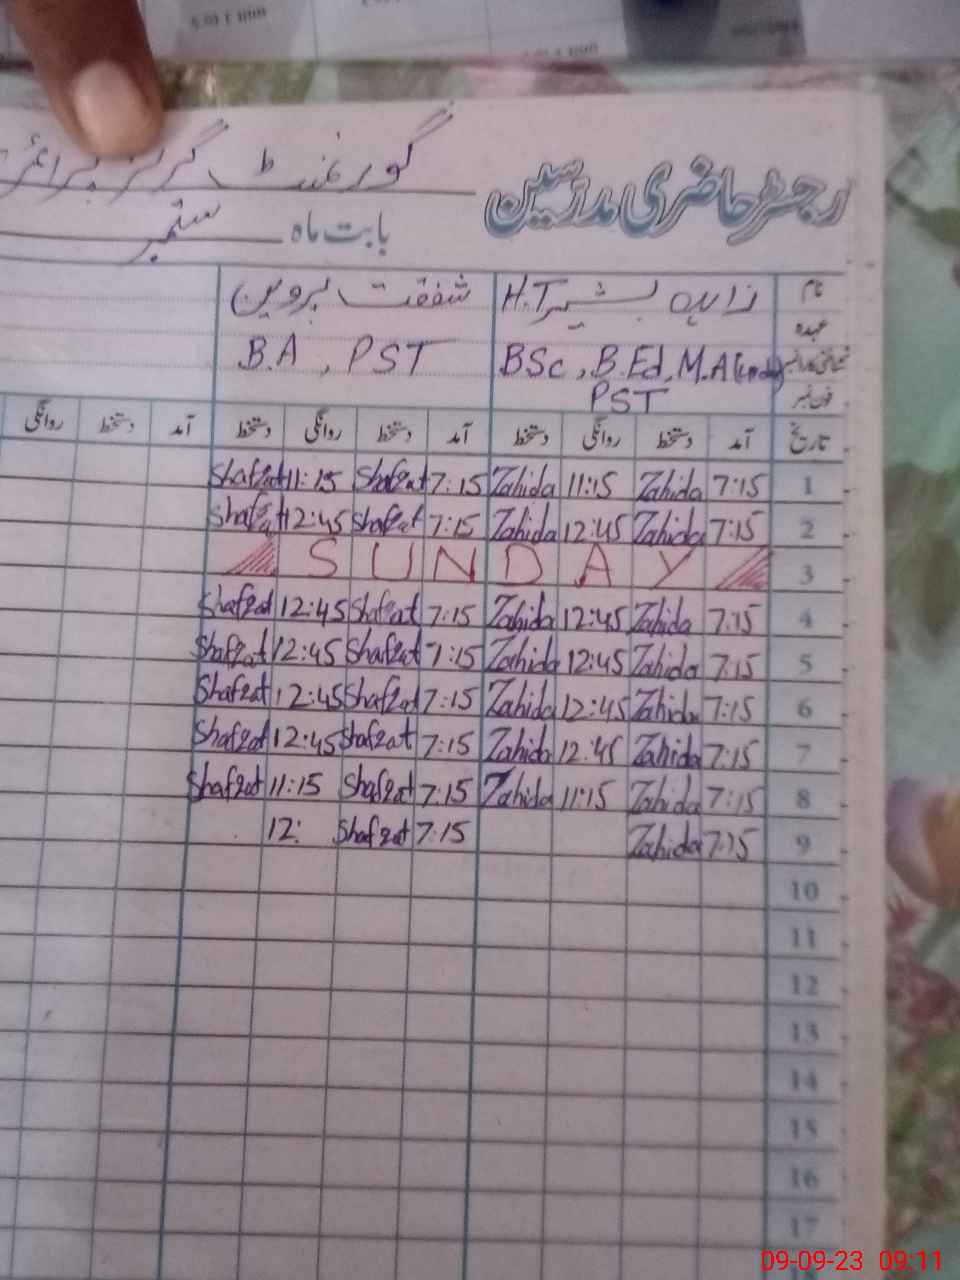 رجسٹر حاضری مدرسین گورنمنٹ گرلز پرائمری
بابت ماہ ستمبر
نام زاہدہ بشیر H.T شفقت پروین
عہدہ
BSc, B.Ed, M.A (Urdu) B.A, PST
PST
فون نمبر
تاریخ آمد دستخط روانگی دستخط آمد دستخط روانگی دستخط آمد دستخط روانگی
1 7:15 Zahida 11:15 Zahida 7:15 Shafqat 11:15 Shafqat
2 7:15 Zahida 12:45 Zahida 7:15 Shafqat 12:45 Shafqat
3 SUNDAY
4 7:15 Zahida 12:45 Zahida 7:15 Shafqat 12:45 Shafqat
5 7:15 Zahida 12:45 Zahida 7:15 Shafqat 12:45 Shafqat
6 7:15 Zahida 12:45 Zahida 7:15 Shafqat 12:45 Shafqat
7 7:15 Zahida 12:45 Zahida 7:15 Shafqat 12:45 Shafqat
8 7:15 Zahida 11:15 Zahida 7:15 Shafqat 11:15 Shafqat
9 7:15 Zahida 7:15 Shafqat 12:
10
11
12
13
14
15
16
17
09-09-23 09:11